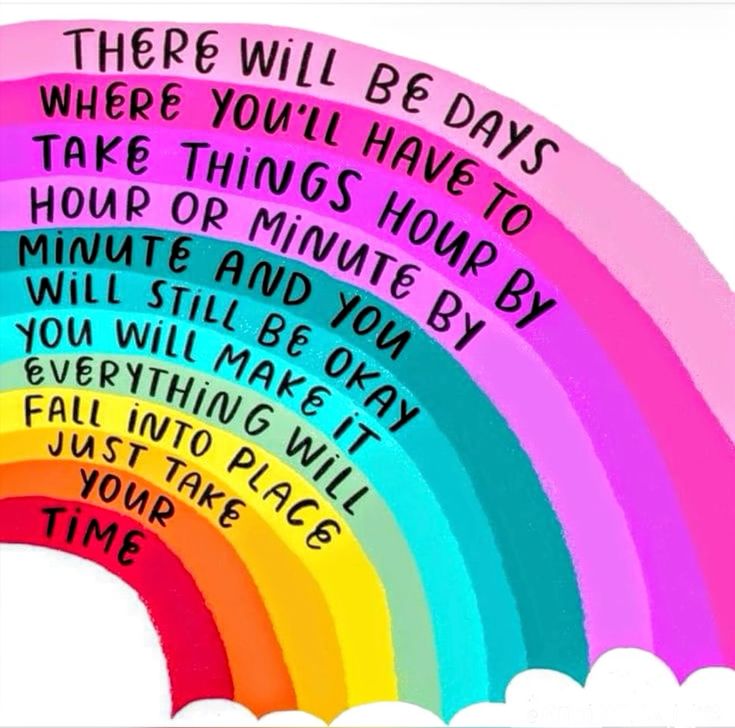 THERE WILL BE DAYS
WHERE YOU'LL HAVE TO
TAKE THINGS HOUR BY
HOUR OR MINUTE BY
MINUTE AND YOU
WILL STILL BE OKAY
YOU WILL MAKE IT
EVERYTHING WILL
FALL INTO PLACE
JUST TAKE
YOUR
TIME